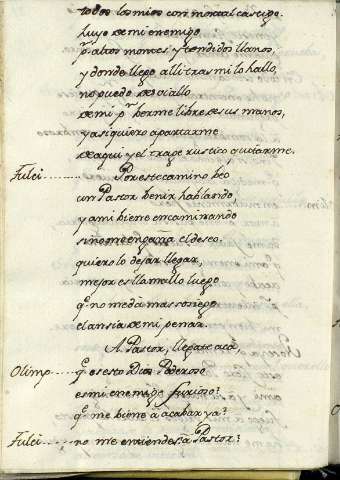 todos los mios con mortal castigo.
huyo de mi enemigo
pr. altos montes y tendidos llanos,
y donde llego, alli tras mi lo hallo,
no puedo desviallo
de mi pr. berme libre de sus manos,
y asi quiero apartarme
de aqui y el trage rustico quitarme.
Fulci.......... Por este camino beo
un Pastor benir hablando
y a mi biene encaminando
si no me engaña el deseo.
quiero lo dejar llegar,
mejor es llamallo luego
q. no me da mas sosiego
el ansia de mi penar.
A Pastor, llegate acá
Olimp.......... q. es esto Dios Poderoso
es mi enemigo furioso?
q. me biene a acabar ya?
Fulci.......... no me entiendes a Pastor?